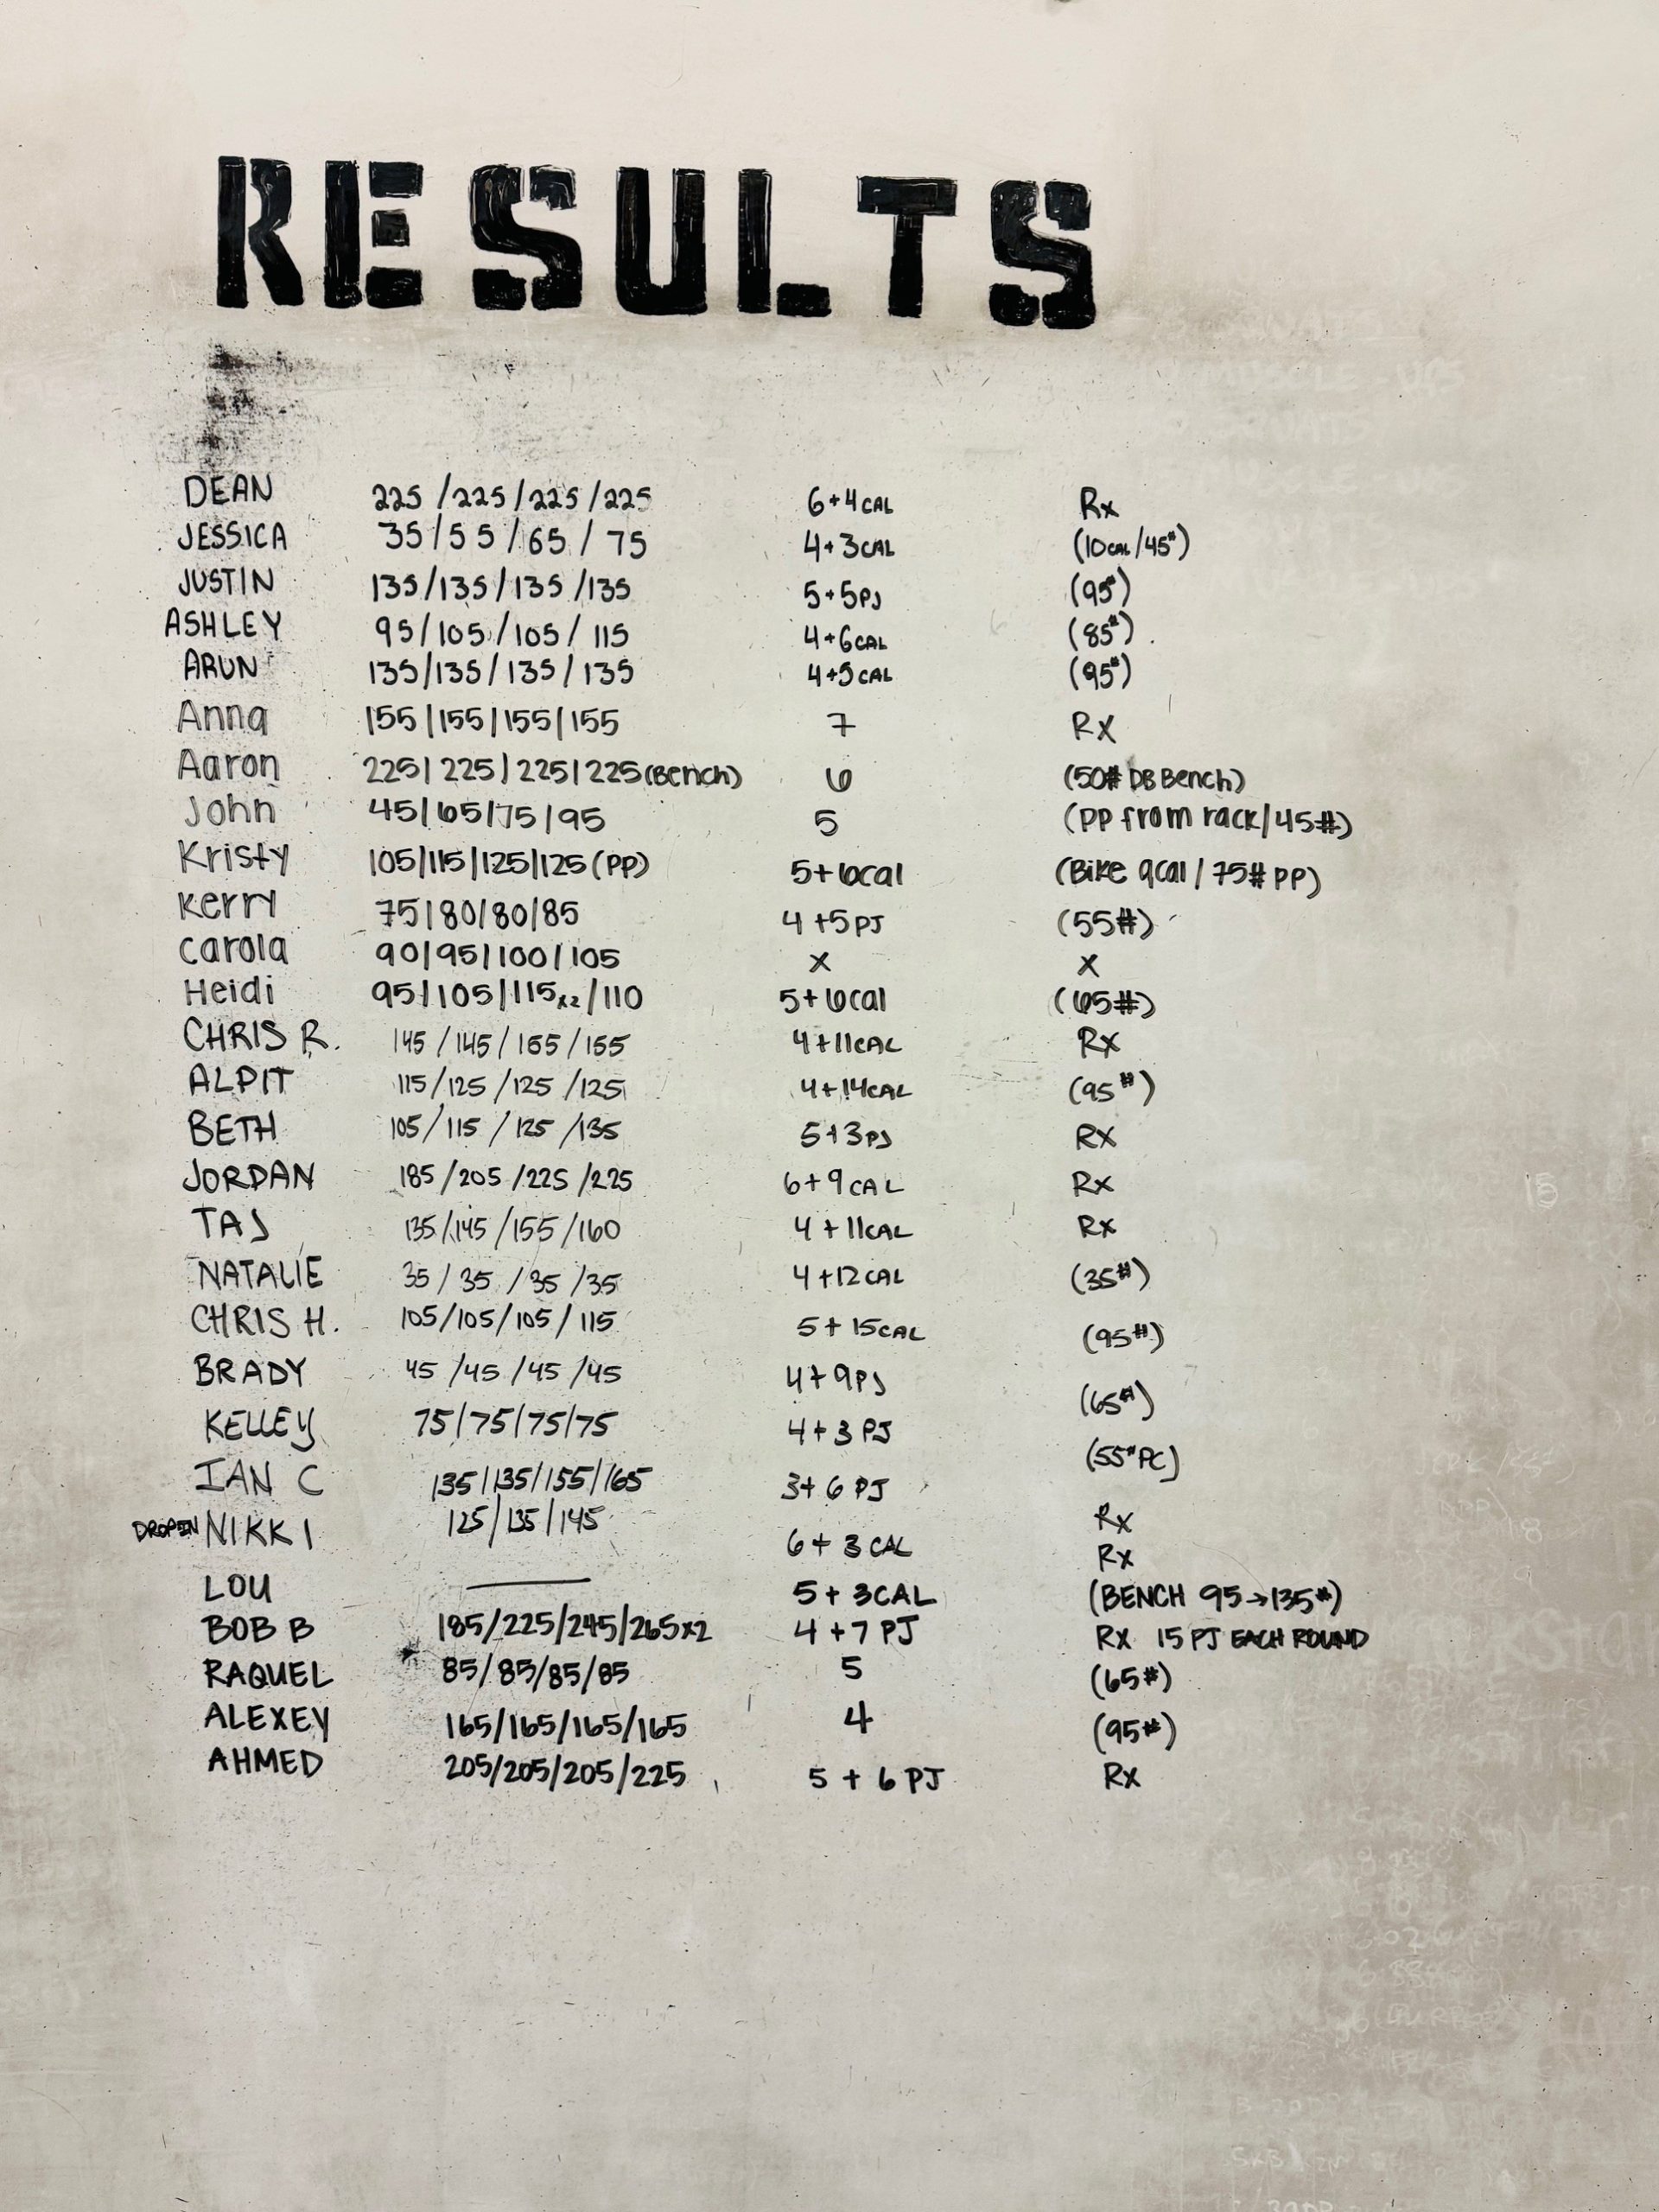 RESULTS
DEAN 225 / 225 / 225 / 225 6+4 CAL Rx
JESSICA 35 / 55 / 65 / 75 4+3CAL (10CAL/45#)
JUSTIN 135/135/135/135 5+5PJ (95#)
ASHLEY 95/105/105/115 4+6CAL (85#)
ARUN 135/135/135/135 4+5CAL (95#)
Anna 155|155|155|155 7 RX
Aaron 225|225|225|225(Bench) 6 (50# DB Bench)
John 45|65|75|95 5 (PP from rack/45#)
Kristy 105|115|125|125(PP) 5+6cal (Bike 9cal / 75# PP)
Kerry 75|80/80/85 4 +5PJ (55#)
Carola 90|95|100/105 X X
Heidi 95|105|115x2/110 5+6cal (65#)
CHRIS R. 145 / 145 / 155 / 155 4+11CAL Rx
ALPIT 115/125 /125 /125 4+14CAL (95#)
BETH 105/115 / 125 /135 5+3PJ RX
JORDAN 185 /205 /225 /225 6+9CAL Rx
TAJ 135/145/155/160 4 +11CAL Rx
NATALIE 35 / 35 / 35 /35 4+12CAL (35#)
CHRIS H. 105/105/105/ 115 5+ 15CAL (95#)
BRADY 45 /45 /45 /45 4+9PJ (65#)
KELLEY 75/75/75/75 4+3 PJ (55# PC)
IAN C 135/135/155/165 3+ 6 PJ Rx
DROP IN NIKKI 125/135/145 6+ 3 CAL Rx
LOU — 5+ 3CAL (BENCH 95→135#)
BOB B 185/225/245/265x2 4 +7 PJ Rx 15 PJ EACH ROUND
RAQUEL 85/85/85/85 5 (65#)
ALEXEY 165/165/165/165 4 (95#)
AHMED 205/205/205/225 5 + 6 PJ Rx